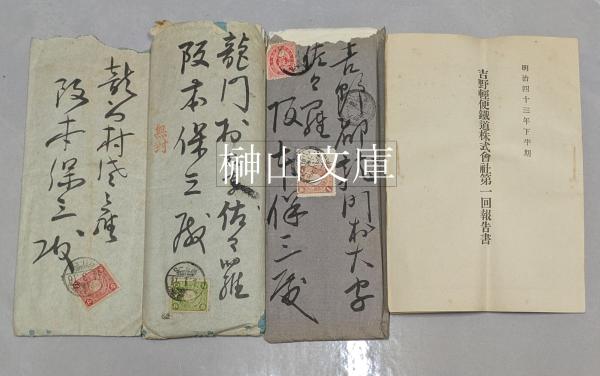 明治四十三年下半期
吉野輕便鐵道株式會社第一回報告書
吉野郡龍門村大字
佐々羅
阪本保三殿
龍門村字佐々羅
阪本保三殿
無封
龍門村佐々羅
阪本保三殿
榊山文庫